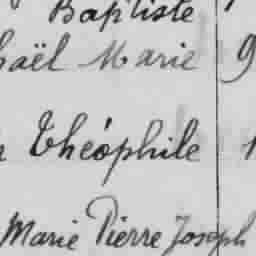 Baptiste
haël Marie 9
Théophile
Marie Pierre Joseph